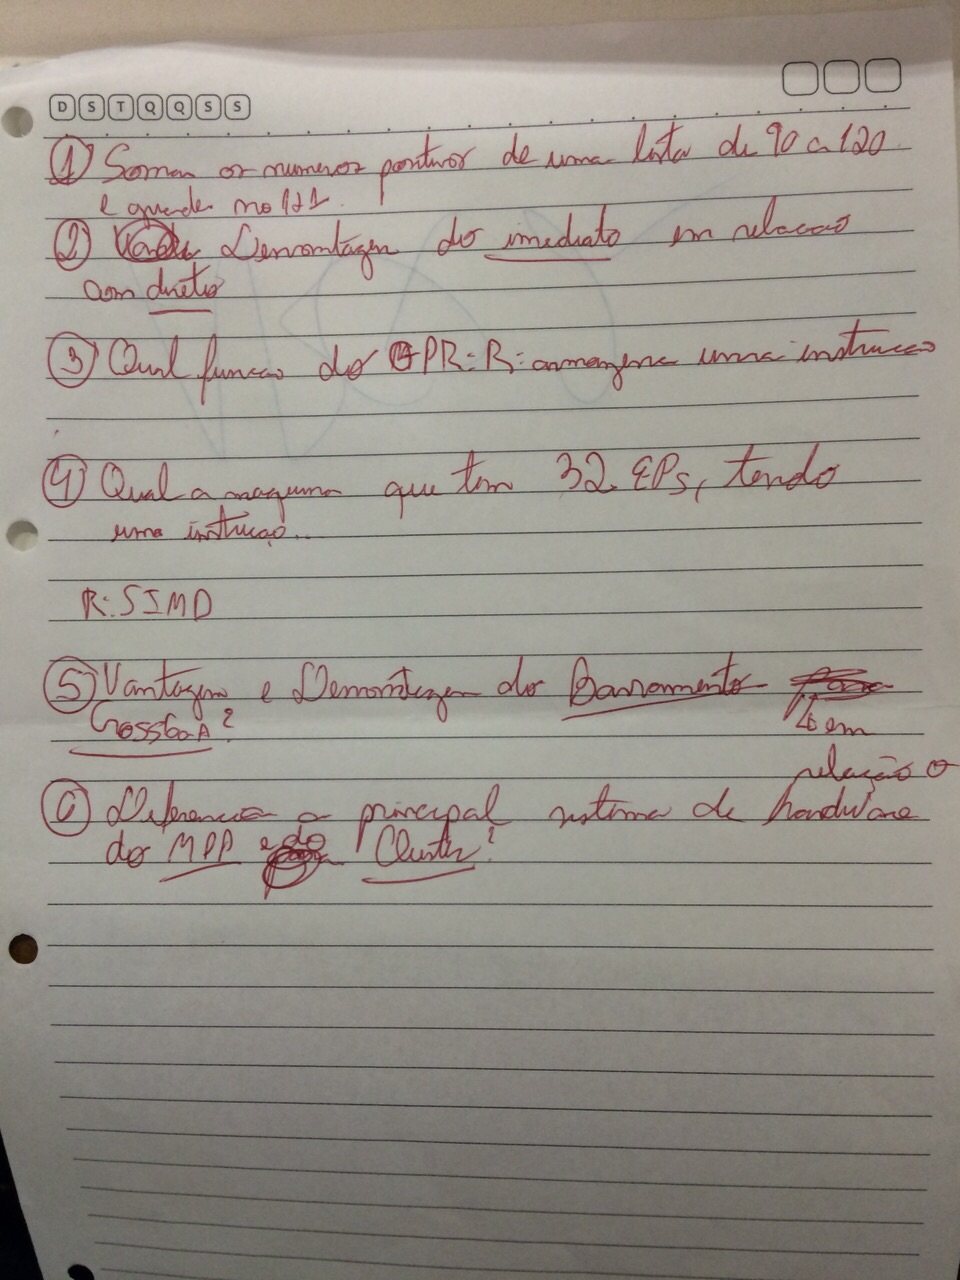 D S T Q Q S S
① Somar os numeros positivos de uma lista de 90 a 120
e guarde no 121.
② Desvantagem do imediato em relacao
com direto
③ Qual funcao do PR: R: armazena uma instrucao
④ Qual a maquina que tem 32 EPs, tendo
uma instruçao..
R: SIMD
⑤ Vantagem e Desvantagem do Barramento
CrossbaR? em
relação o
⑥ Diferencie o principal sistema de hardware
do MPP e do Cluster?